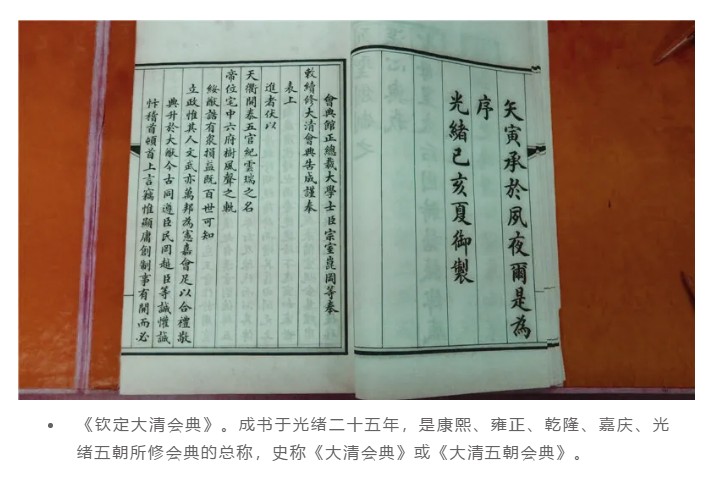 矢寅承於夙夜爾是為
序
光緒己亥夏御製
會典館正總裁大學士臣宗室崑岡等奉
敕續修大清會典告成謹奉
表上
進者伏以
天衢開泰五官紀雲瑞之名
帝位宅中六府樹風聲之軌
綏猷誥有衆損益既百世可知
立政惟其人文武亦萬邦為憲嘉會足以合禮敬
典升於大猷今古同遵臣民罔越臣等誠懽誠
忭稽首頓首上言竊惟顯庸創制事有開而必
《钦定大清会典》。成书于光绪二十五年，是康熙、雍正、乾隆、嘉庆、光
绪五朝所修会典的总称，史称《大清会典》或《大清五朝会典》。